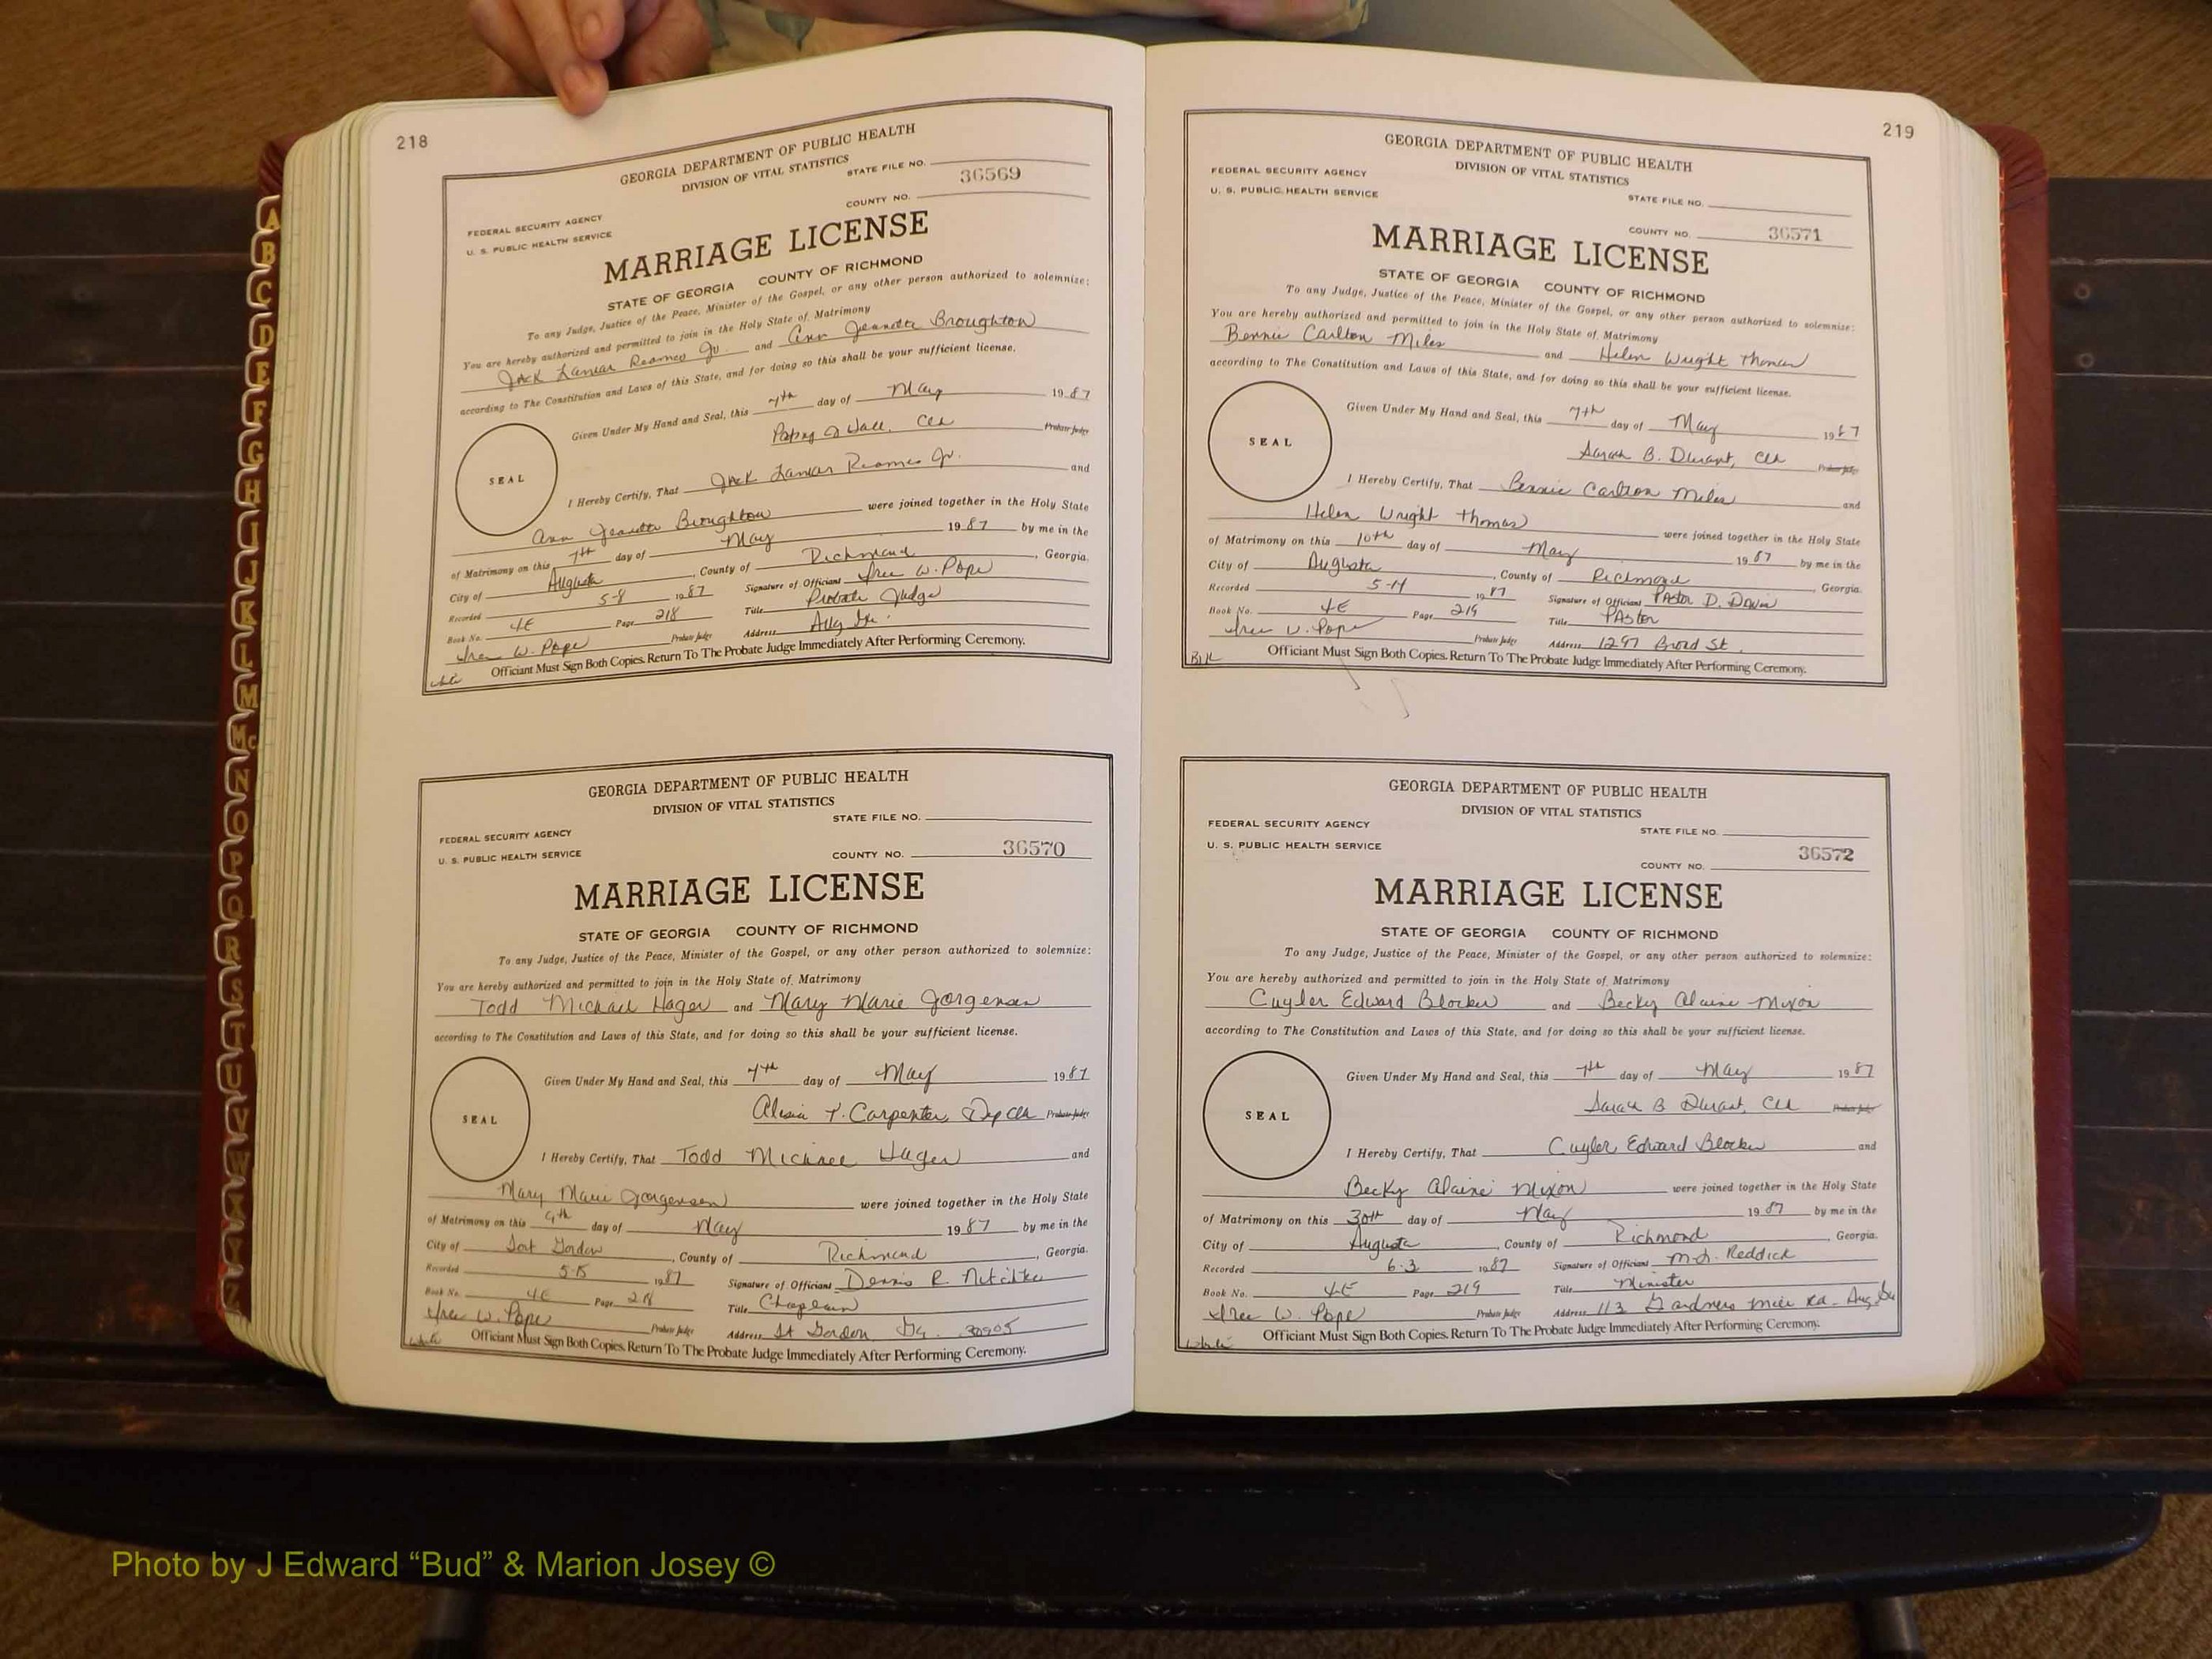 218
GEORGIA DEPARTMENT OF PUBLIC HEALTH
DIVISION OF VITAL STATISTICS
STATE FILE NO.
36569
FEDERAL SECURITY AGENCY
COUNTY NO.
U. S. PUBLIC HEALTH SERVICE
MARRIAGE LICENSE
STATE OF GEORGIA COUNTY OF RICHMOND
To any Judge, Justice of the Peace, Minister of the Gospel, or any other person authorized to solemnize:
You are hereby authorized and permitted to join in the Holy State of Matrimony
Jack Lamar Reames Jr and Ann Jeanette Broughton
according to The Constitution and Laws of this State, and for doing so this shall be your sufficient license.
Given Under My Hand and Seal, this 7th day of May 1987
Wall, Clk Probate Judge
SEAL
I Hereby Certify, That Jack Lamar Reames Jr. and
Ann Jeanette Broughton were joined together in the Holy State
of Matrimony on this 7th day of May 1987 by me in the
City of Augusta, County of Richmond, Georgia.
Recorded 5-8 1987 Signature of Officiant W. Pope
Book No. 4E Page 218 Title Probate Judge
W. Pope Probate Judge Address Aug Ga.
Officiant Must Sign Both Copies. Return To The Probate Judge Immediately After Performing Ceremony.
white
GEORGIA DEPARTMENT OF PUBLIC HEALTH
DIVISION OF VITAL STATISTICS
STATE FILE NO.
FEDERAL SECURITY AGENCY
U. S. PUBLIC HEALTH SERVICE
COUNTY NO. 36570
MARRIAGE LICENSE
STATE OF GEORGIA COUNTY OF RICHMOND
To any Judge, Justice of the Peace, Minister of the Gospel, or any other person authorized to solemnize:
You are hereby authorized and permitted to join in the Holy State of Matrimony
Todd Michael Hager and Mary Marie Jorgensen
according to The Constitution and Laws of this State, and for doing so this shall be your sufficient license.
Given Under My Hand and Seal, this 7th day of May 1987
Alesia T. Carpenter, Dep Clk Probate Judge
SEAL
I Hereby Certify, That Todd Michael Hager and
Mary Marie Jorgensen were joined together in the Holy State
of Matrimony on this 9th day of May 1987 by me in the
City of Fort Gordon, County of Richmond, Georgia.
Recorded 5-15 1987 Signature of Officiant Dennis R.
Book No. 4E Page 218 Title Chaplain
W. Pope Probate Judge Address Ft Gordon Ga. 30905
Officiant Must Sign Both Copies. Return To The Probate Judge Immediately After Performing Ceremony.
white
219
GEORGIA DEPARTMENT OF PUBLIC HEALTH
DIVISION OF VITAL STATISTICS
FEDERAL SECURITY AGENCY
U. S. PUBLIC HEALTH SERVICE
STATE FILE NO.
COUNTY NO. 36571
MARRIAGE LICENSE
STATE OF GEORGIA COUNTY OF RICHMOND
To any Judge, Justice of the Peace, Minister of the Gospel, or any other person authorized to solemnize:
You are hereby authorized and permitted to join in the Holy State of Matrimony
Bennie Carlton Miles and Helen Wright Thomas
according to The Constitution and Laws of this State, and for doing so this shall be your sufficient license.
Given Under My Hand and Seal, this 7th day of May 1987
Sarah B. Durant, Clk Probate Judge
SEAL
I Hereby Certify, That Bennie Carlton Miles and
Helen Wright Thomas were joined together in the Holy State
of Matrimony on this 10th day of May 1987 by me in the
City of Augusta, County of Richmond, Georgia.
Recorded 5-14 1987 Signature of Officiant Pastor D.
Book No. 4E Page 219 Title Pastor
W. Pope Probate Judge Address 1297 Broad St.
Officiant Must Sign Both Copies. Return To The Probate Judge Immediately After Performing Ceremony.
GEORGIA DEPARTMENT OF PUBLIC HEALTH
DIVISION OF VITAL STATISTICS
FEDERAL SECURITY AGENCY
STATE FILE NO.
U. S. PUBLIC HEALTH SERVICE
36572
COUNTY NO.
MARRIAGE LICENSE
STATE OF GEORGIA COUNTY OF RICHMOND
To any Judge, Justice of the Peace, Minister of the Gospel, or any other person authorized to solemnize:
You are hereby authorized and permitted to join in the Holy State of Matrimony
Cuyler Edward Blocker and Becky Alaine Mixon
according to The Constitution and Laws of this State, and for doing so this shall be your sufficient license.
Given Under My Hand and Seal, this 7th day of May 1987
Sarah B Durant, Clk Probate Judge
SEAL
I Hereby Certify, That Cuyler Edward Blocker and
Becky Alaine Mixon were joined together in the Holy State
of Matrimony on this 30th day of May 1987 by me in the
City of Augusta, County of Richmond, Georgia.
Recorded 6-3 1987 Signature of Officiant Reddick
Book No. 4E Page 219 Title Minister
W. Pope Probate Judge Address 113 Gardners Mill Rd. Aug Ga
Officiant Must Sign Both Copies. Return To The Probate Judge Immediately After Performing Ceremony.
white
A
B
C
D
E
F
G
H
I
J
K
L
M
Mc
N
O
P
Q
R
S
T
U
V
W
X
Y
Z
Photo by J Edward “Bud” & Marion Josey ©